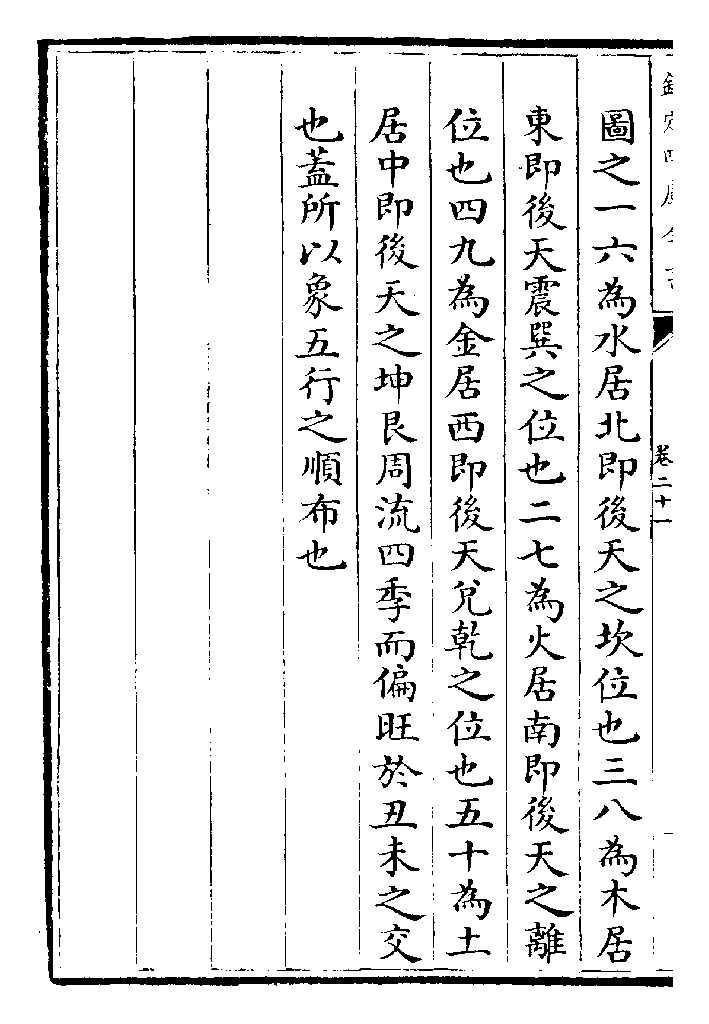 欽定四庫全書
卷二十一
圖之一六為水居北即後天之坎位也三八為木居
東即後天震巽之位也二七為火居南即後天之離
位也四九為金居西即後天兌乾之位也五十為土
居中即後天之坤艮周流四季而偏旺於丑未之交
也蓋所以象五行之順布也